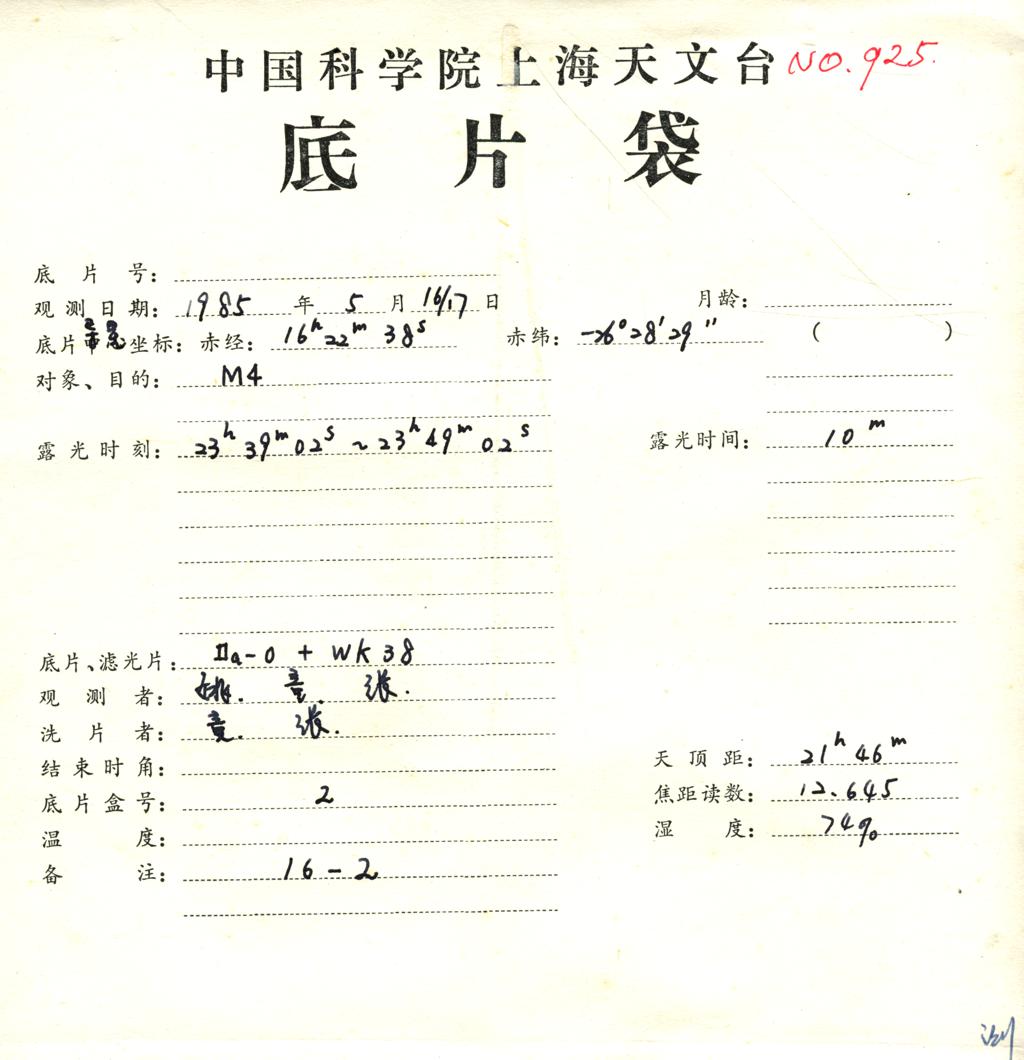 中国科学院上海天文台 NO.925.
底片袋
底片号：
观测日期：1985年5月16/17日 月龄：
底片坐标：赤经：16h22m38s 赤纬：-26°28′29″ （ ）
对象、目的：M4
露光时刻：23h39m02s~23h49m02s 露光时间：10m
底片、滤光片：IIa-O + WK38
观测者：张.
洗片者：张.
结束时角： 天顶距：21h46m
底片盒号：2 焦距读数：12.645
温度： 湿度：74%
备注：16-2